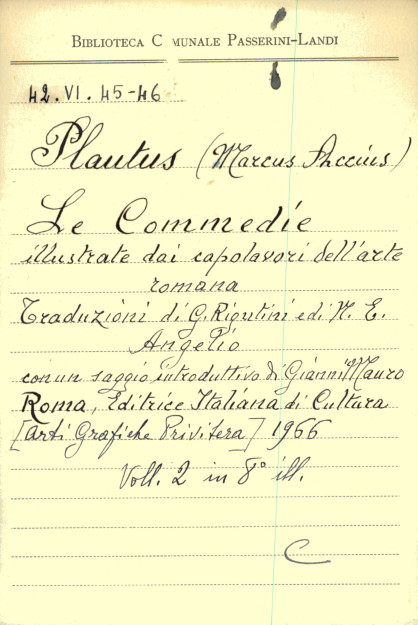 BIBLIOTECA C MUNALE PASSERINI-LANDI
42.VI.45-46
Plautus (Marcus Accius)
Le Commedie
illustrate dai capolavori dell'arte
romana
Traduzioni di G. Rigutini e di N. E.
Angelio
con un saggio introduttivo di Gianni Mauro
Roma, Editrice Italiana di Cultura
[Arti Grafiche Privitera] 1966
Voll. 2 in 8° ill.
C